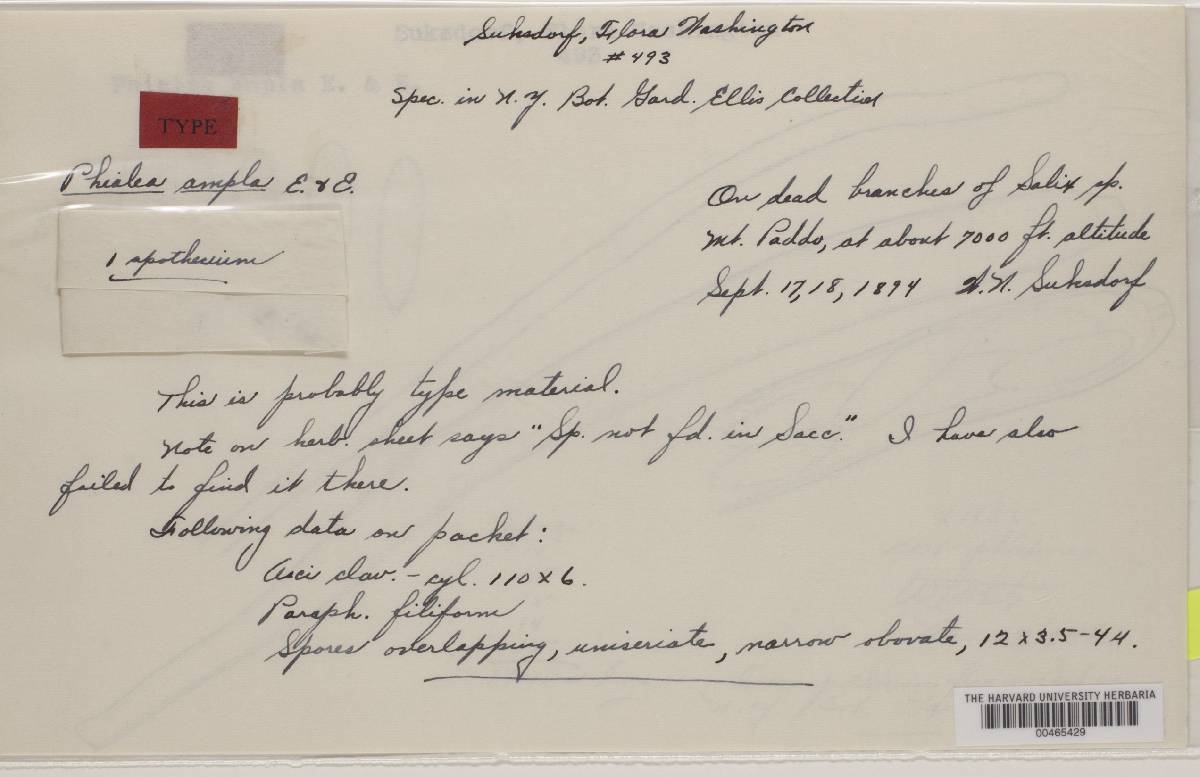 Suksdorf, Flora Washington
#493
Spec. in N. Y. Bot. Gard. Ellis Collection
TYPE
Phialea ampla E. & E.
1 apothecium
On dead branches of Salix sp.
Mt. Paddo, at about 7000 ft. altitude
Sept. 17, 18, 1894 W. N. Suksdorf
This is probably type material.
Note on herb. sheet says "Sp. not fd. in Sacc." I have also
failed to find it there.
Following data on packet:
Asci clav. - cyl. 110 x 6.
Paraph. filiform
Spores overlapping, uniseriate, narrow obovate, 12 x 3.5-4 μ.
THE HARVARD UNIVERSITY HERBARIA
00465429